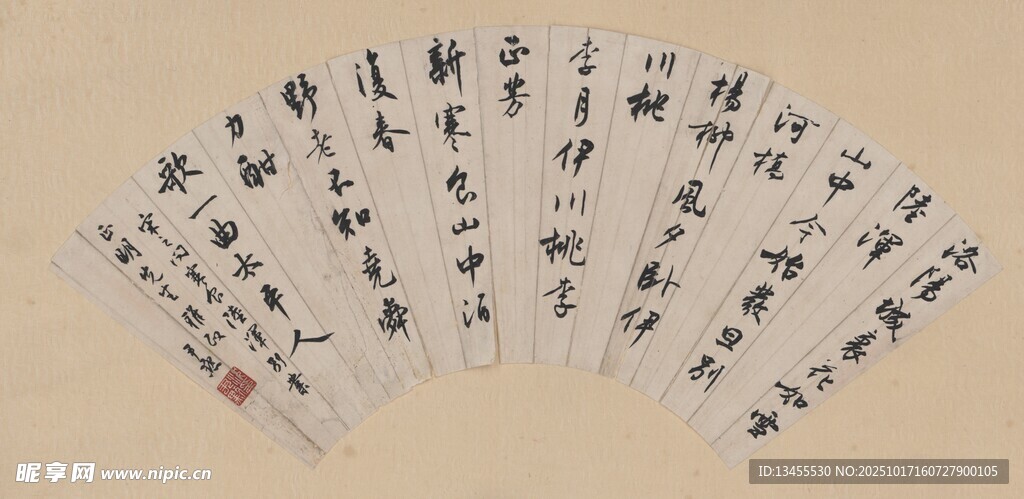 洛陽城裏花如雪
陸渾
山中今始發旦別
河橋
楊柳風夕卧伊
川桃
李月伊川桃李
正芳
新寒食山中酒
復春
野老不知堯舜
力酣
歌一曲太平人
宋之问寒食陸渾別業
正明先生雅政 尹默
昵享网 www.nipic.cn
ID:13455530 NO:20251017160727900105